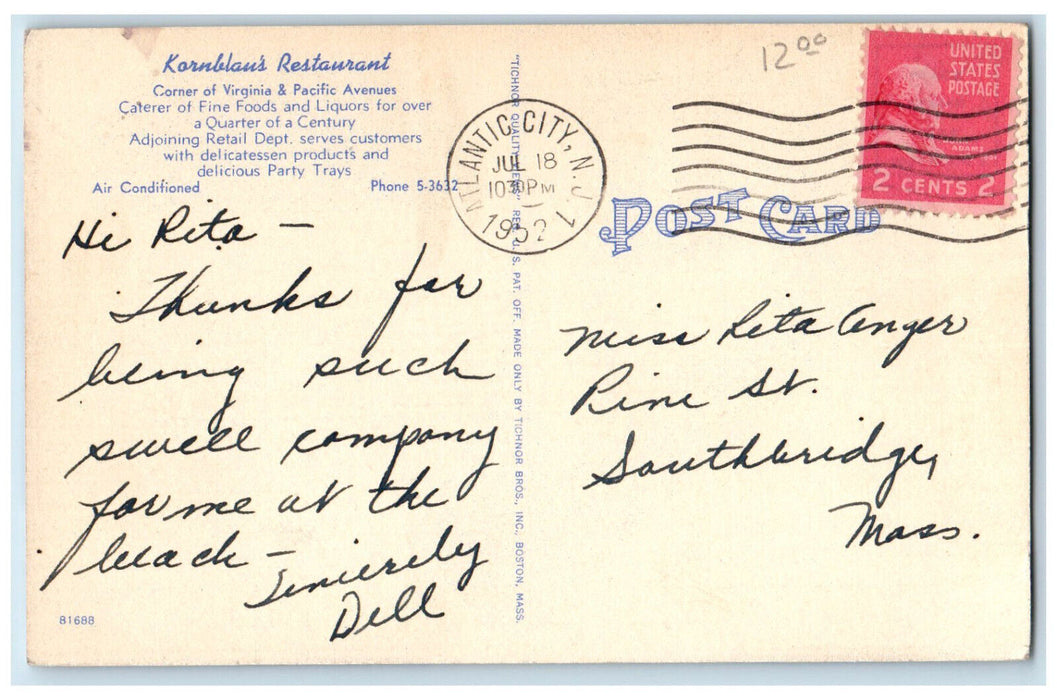 Kornblau's Restaurant
Corner of Virginia & Pacific Avenues
Caterer of Fine Foods and Liquors for over
a Quarter of a Century
Adjoining Retail Dept. serves customers
with delicatessen products and
delicious Party Trays
Air Conditioned Phone 5-3632
Hi Rita —
Thanks for
being such
swell company
for me at the
beach —
Sincerely
Dell
81688
"TICHNOR QUALITY VIEWS" REG. U. S. PAT. OFF. MADE ONLY BY TICHNOR BROS., INC., BOSTON, MASS.
ATLANTIC CITY, N. J. 1
JUL 18
10 30 PM
1952
12 00
UNITED
STATES
POSTAGE
JOHN
ADAMS
2 CENTS 2
POST CARD
Miss Rita Anger
Pine St.
Southbridge,
Mass.